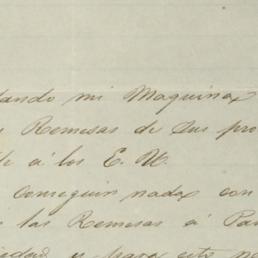 dando mi Maquina
Remesas de sus pro
á los E. U.
conseguir nada con
las Remesas á Pa